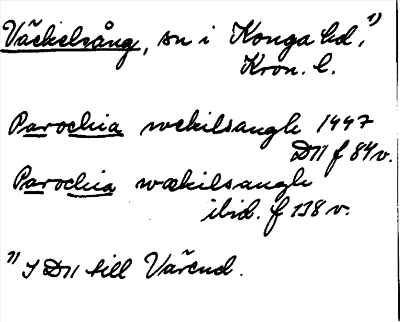 Väckelsång, sn i Konga hd,¹⁾
Kron. l.
Parochia wekilsangh 1447
D11 f 84 v.
Parochia wækilsangh
ibid. f 138 v.
¹⁾ I D11 till Värend.